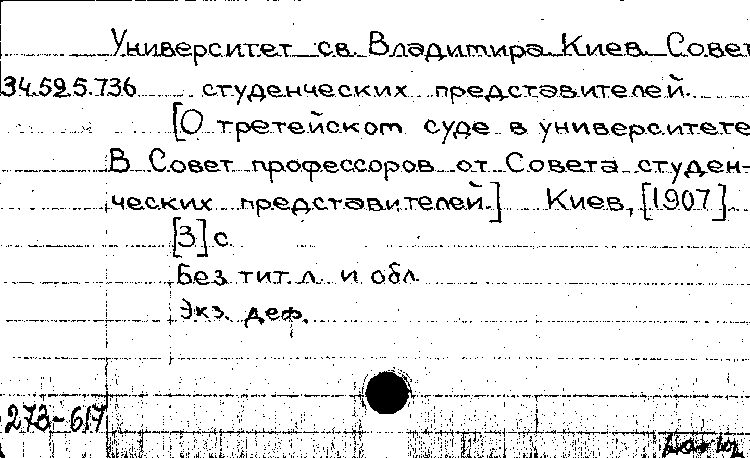 Университет св. Владимира. Киев. Совет
34.525.736 студенческих представителей.
[О третейском суде в университете
В Совет профессоров от Совета студен-
ческих представителей.] Киев, [1907].
[3] с.
Без тит. л. и обл.
Экз. деф.
273-617